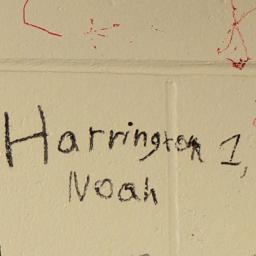 Harrington 1,
Noah